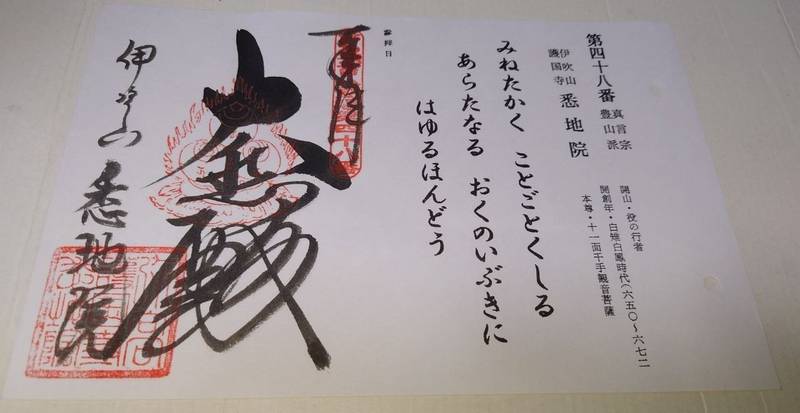 第四十八番
真言宗
豊山派
伊吹山
護国寺
悉地院
開山・役の行者
開創年・白雉白鳳時代(六五〇～六七二
本尊・十一面千手観音菩薩
みねたかく ことごとくしる
あらたなる おくのいぶきに
はゆるほんどう
参拝日
奉拝
大悲殿
伊吹山 悉地院